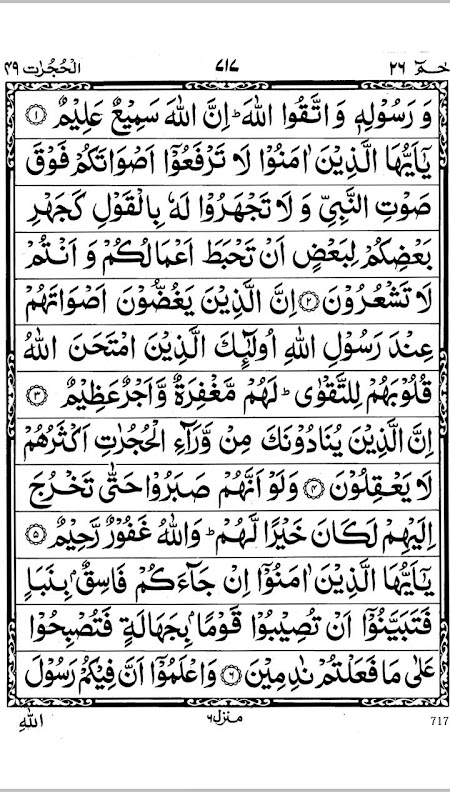 حٰمٓ ٢٦ ٧١٧ الْحُجُرٰت ٤٩
وَ رَسُوْلِهٖ وَ اتَّقُوا اللّٰهَ ؕ اِنَّ اللّٰهَ سَمِیْعٌ عَلِیْمٌ ﴿۱﴾
یٰۤاَیُّهَا الَّذِیْنَ اٰمَنُوْا لَا تَرْفَعُوْۤا اَصْوَاتَكُمْ فَوْقَ
صَوْتِ النَّبِیِّ وَ لَا تَجْهَرُوْا لَهٗ بِالْقَوْلِ كَجَهْرِ
بَعْضِكُمْ لِبَعْضٍ اَنْ تَحْبَطَ اَعْمَالُكُمْ وَ اَنْتُمْ
لَا تَشْعُرُوْنَ ﴿۲﴾ اِنَّ الَّذِیْنَ یَغُضُّوْنَ اَصْوَاتَهُمْ
عِنْدَ رَسُوْلِ اللّٰهِ اُولٰٓىِٕكَ الَّذِیْنَ امْتَحَنَ اللّٰهُ
قُلُوْبَهُمْ لِلتَّقْوٰی ؕ لَهُمْ مَّغْفِرَةٌ وَّ اَجْرٌ عَظِیْمٌ ﴿۳﴾
اِنَّ الَّذِیْنَ یُنَادُوْنَكَ مِنْ وَّرَآءِ الْحُجُرٰتِ اَكْثَرُهُمْ
لَا یَعْقِلُوْنَ ﴿۴﴾ وَلَوْ اَنَّهُمْ صَبَرُوْا حَتّٰی تَخْرُجَ
اِلَیْهِمْ لَكَانَ خَیْرًا لَّهُمْ ؕ وَاللّٰهُ غَفُوْرٌ رَّحِیْمٌ ﴿۵﴾
یٰۤاَیُّهَا الَّذِیْنَ اٰمَنُوْۤا اِنْ جَآءَكُمْ فَاسِقٌۢ بِنَبَاٍ
فَتَبَیَّنُوْۤا اَنْ تُصِیْبُوْا قَوْمًۢا بِجَهَالَةٍ فَتُصْبِحُوْا
عَلٰی مَا فَعَلْتُمْ نٰدِمِیْنَ ﴿۶﴾ وَاعْلَمُوْۤا اَنَّ فِیْكُمْ رَسُوْلَ
اللّٰهِ منزل٦ 717